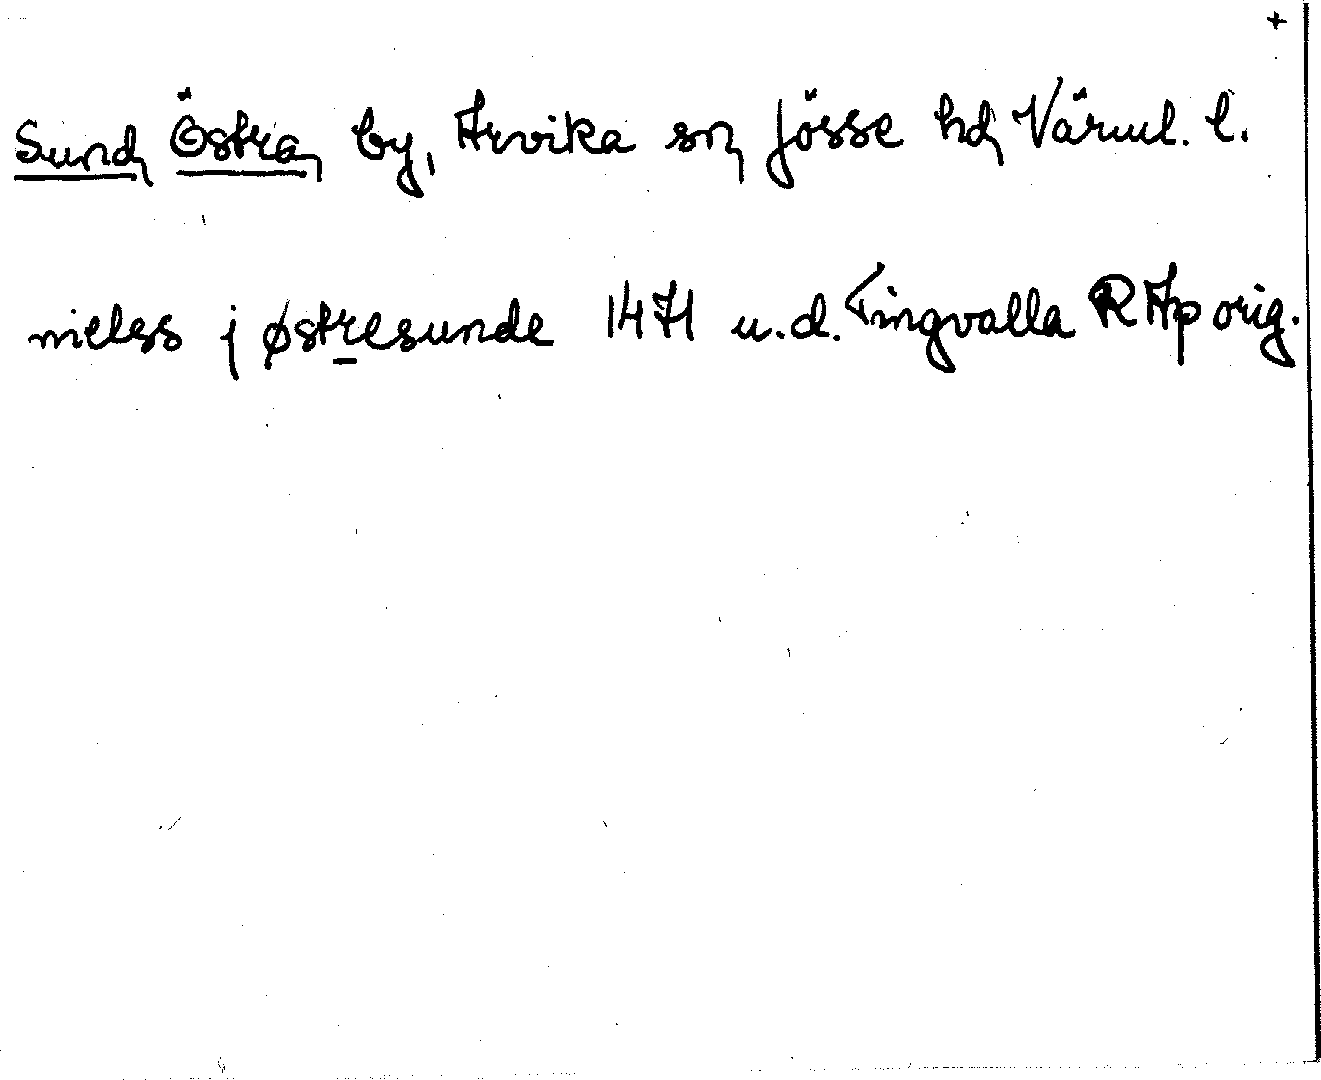 +
Sund, Östra, by, Arvika sn, Jösse hd, Värml. l.
nielss j østresunde 1471 u.d. Tingvalla RAp orig.